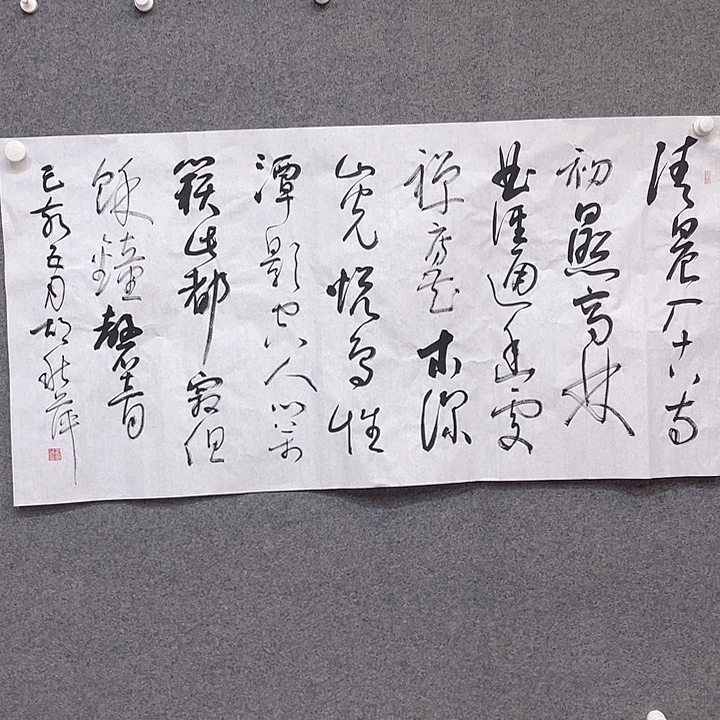 清晨入古寺
初日照高林
曲徑通幽處
禪房花木深
山光悦鳥性
潭影空人心萬
籟此都寂但
餘鐘磬音
己亥五月胡秋萍